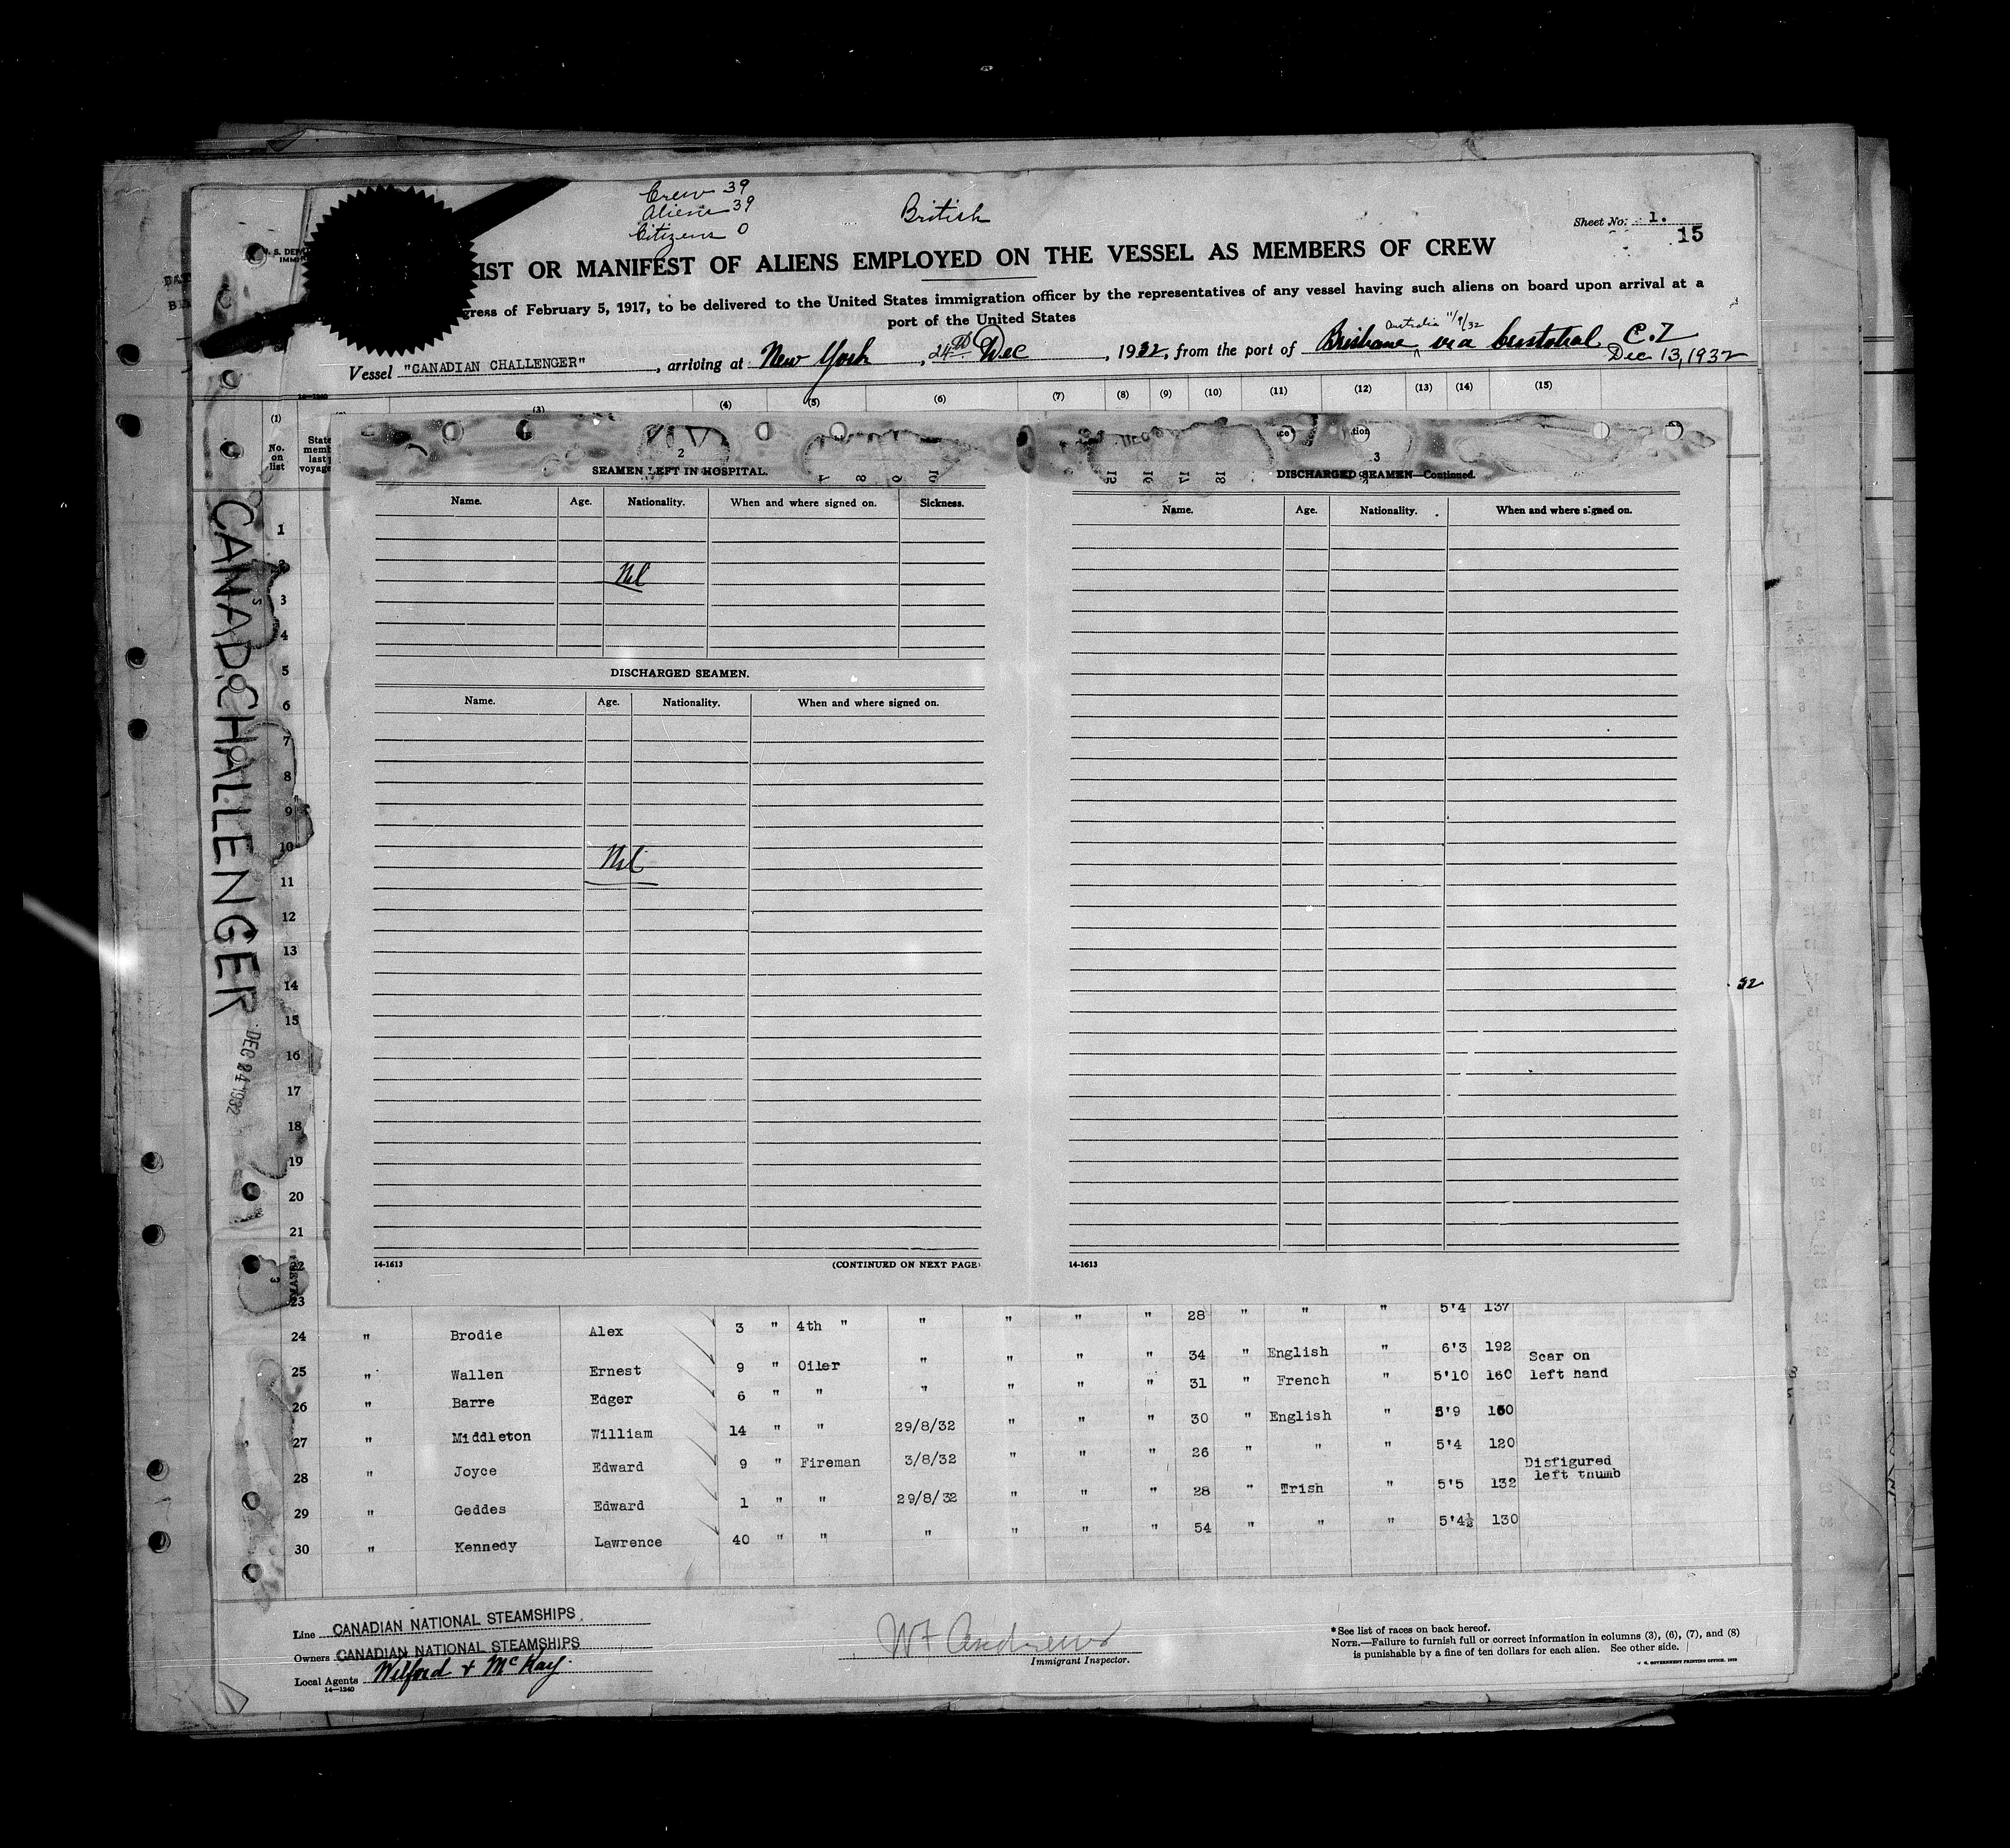 Crew 39
Aliens 39
Citizens 0
British
Sheet No. 1.
15
IST OR MANIFEST OF ALIENS EMPLOYED ON THE VESSEL AS MEMBERS OF CREW
gress of February 5, 1917, to be delivered to the United States immigration officer by the representatives of any vessel having such aliens on board upon arrival at a
port of the United States
Australia 11/9/32
Vessel "CANADIAN CHALLENGER", arriving at New York, 24th Dec, 1932, from the port of Brisbane via Cristobal C.Z
Dec 13, 1932
(1) (3) (4) (5) (6) (7) (8) (9) (10) (11) (12) (13) (14) (15)
No. on list
CANAD. CHALLENGER
DEC 24 1932
2
SEAMEN LEFT IN HOSPITAL.
Name. Age. Nationality. When and where signed on. Sickness.
Nil
DISCHARGED SEAMEN.
Name. Age. Nationality. When and where signed on.
Nil
14-1613 (CONTINUED ON NEXT PAGE)
3
DISCHARGED SEAMEN—Continued.
Name. Age. Nationality. When and where signed on.
14-1613
32
1
3
4
5
6
7
8
9
10
11
12
13
14
15
16
17
18
19
20
21
22
23
" " " " 28 " " " 5'4 137
24 " Brodie Alex 3 " 4th " " " " " 34 " English " 6'3 192 Scar on
25 " Wallen Ernest 9 " Oiler " " " " 31 " French " 5'10 160 left hand
26 " Barre Edger 6 " " " " " " 30 " English " 5'9 150
27 " Middleton William 14 " " 29/8/32 " " " 26 " " " 5'4 120
28 " Joyce Edward 9 " Fireman 3/8/32 " " " 28 " Irish " 5'5 132 Disfigured
left thumb
29 " Geddes Edward 1 " " 29/8/32 " " " 54 " " " 5'4½ 130
30 " Kennedy Lawrence 40 " " " " " "
Line CANADIAN NATIONAL STEAMSHIPS
Owners CANADIAN NATIONAL STEAMSHIPS
Local Agents Wilford & McKay.
14—1240
W F Andrews
Immigrant Inspector.
*See list of races on back hereof.
NOTE.—Failure to furnish full or correct information in columns (3), (6), (7), and (8)
is punishable by a fine of ten dollars for each alien. See other side.